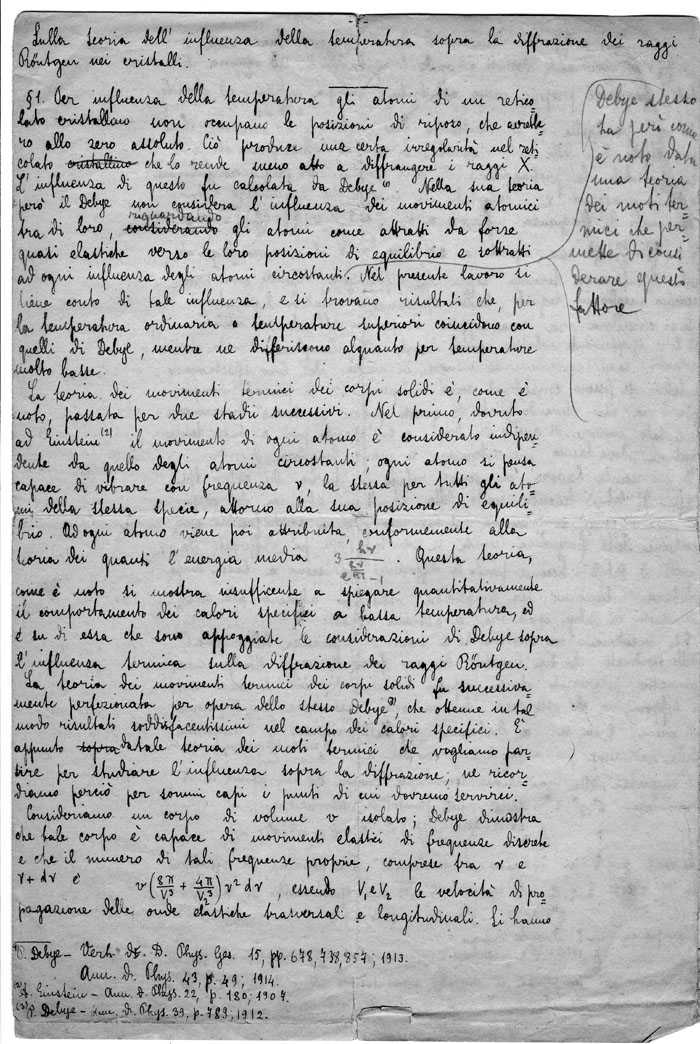 Sulla teoria dell'influenza della temperatura sopra la diffrazione dei raggi
Röntgen nei cristalli.
§1. Per influenza della temperatura gli atomi di un retico=
lato cristallino non occupano le posizioni di riposo, che avrebbe=
ro allo zero assoluto. Ciò produce una certa irregolarità nel reti=
colato cristallino che lo rende meno atto a diffrangere i raggi X.
L'influenza di questo fu calcolata da Debye(1). Nella sua teoria
però il Debye non considera l'influenza dei movimenti atomici
riguardando
tra di loro, considerando gli atomi come attratti da forze
quasi elastiche verso le loro posizioni di equilibrio e sottratti
ad ogni influenza degli atomi circostanti. Nel presente lavoro si
tiene conto di tale influenza, e si trovano risultati che, per
la temperatura ordinaria o temperature superiori coincidono con
quelli di Debye, mentre ne differiscono alquanto per temperature
molto basse.
Debye stesso
ha però come
è noto data
una teoria
dei moti ter=
mici che per=
mette di consi
derare questo
fattore
La teoria dei movimenti termici dei corpi solidi è, come è
noto, passata per due stadii successivi. Nel primo, dovuto
ad Einstein(2) il movimento di ogni atomo è considerato indipen=
dente da quello degli atomi circostanti; ogni atomo si pensa
capace di vibrare con frequenza ν, la stessa per tutti gli ato=
mi della stessa specie, attorno alla sua posizione di equili=
brio. Ad ogni atomo viene poi attribuita, conformemente alla
teoria dei quanti l'energia media 3 hν/(e^(hν/kT) −1). Questa teoria,
come è noto si mostra insufficente a spiegare quantitativamente
il comportamento dei calori specifici a bassa temperatura, ed
è su di essa che sono appoggiate le considerazioni di Debye sopra
l'influenza termica sulla diffrazione dei raggi Röntgen.
La teoria dei movimenti termici dei corpi solidi fu successiva=
mente perfezionata per opera dello stesso Debye(3), che ottenne in tal
modo risultati soddisfacentissimi nel campo dei calori specifici. È
appunto sopra da tale teoria dei moti termici che vogliamo par=
tire per studiare l'influenza sopra la diffrazione; ne ricor=
diamo perciò per sommi capi i punti di cui dovremo servirci.
Consideriamo un corpo di volume v isolato; Debye dimostra
che tale corpo è capace di movimenti elastici di frequenze discrete
e che il numero di tali frequenze proprie, comprese tra ν e
ν+dν è v(8π/V₁³ + 4π/V₂³)ν²dν, essendo V₁ e V₂ le velocità di pro=
pagazione delle onde elastiche trasversali e longitudinali. Si hanno
(1)P. Debye – Verh. d. D. Phys. Ges. 15, pp. 678, 738, 857; 1913.
Ann. d. Phys. 43, p. 49; 1914.
(2)A. Einstein – Ann. d. Phys. 22, p. 180; 1907.
(3)P. Debye – Ann. d. Phys. 39, p. 789, 1912.